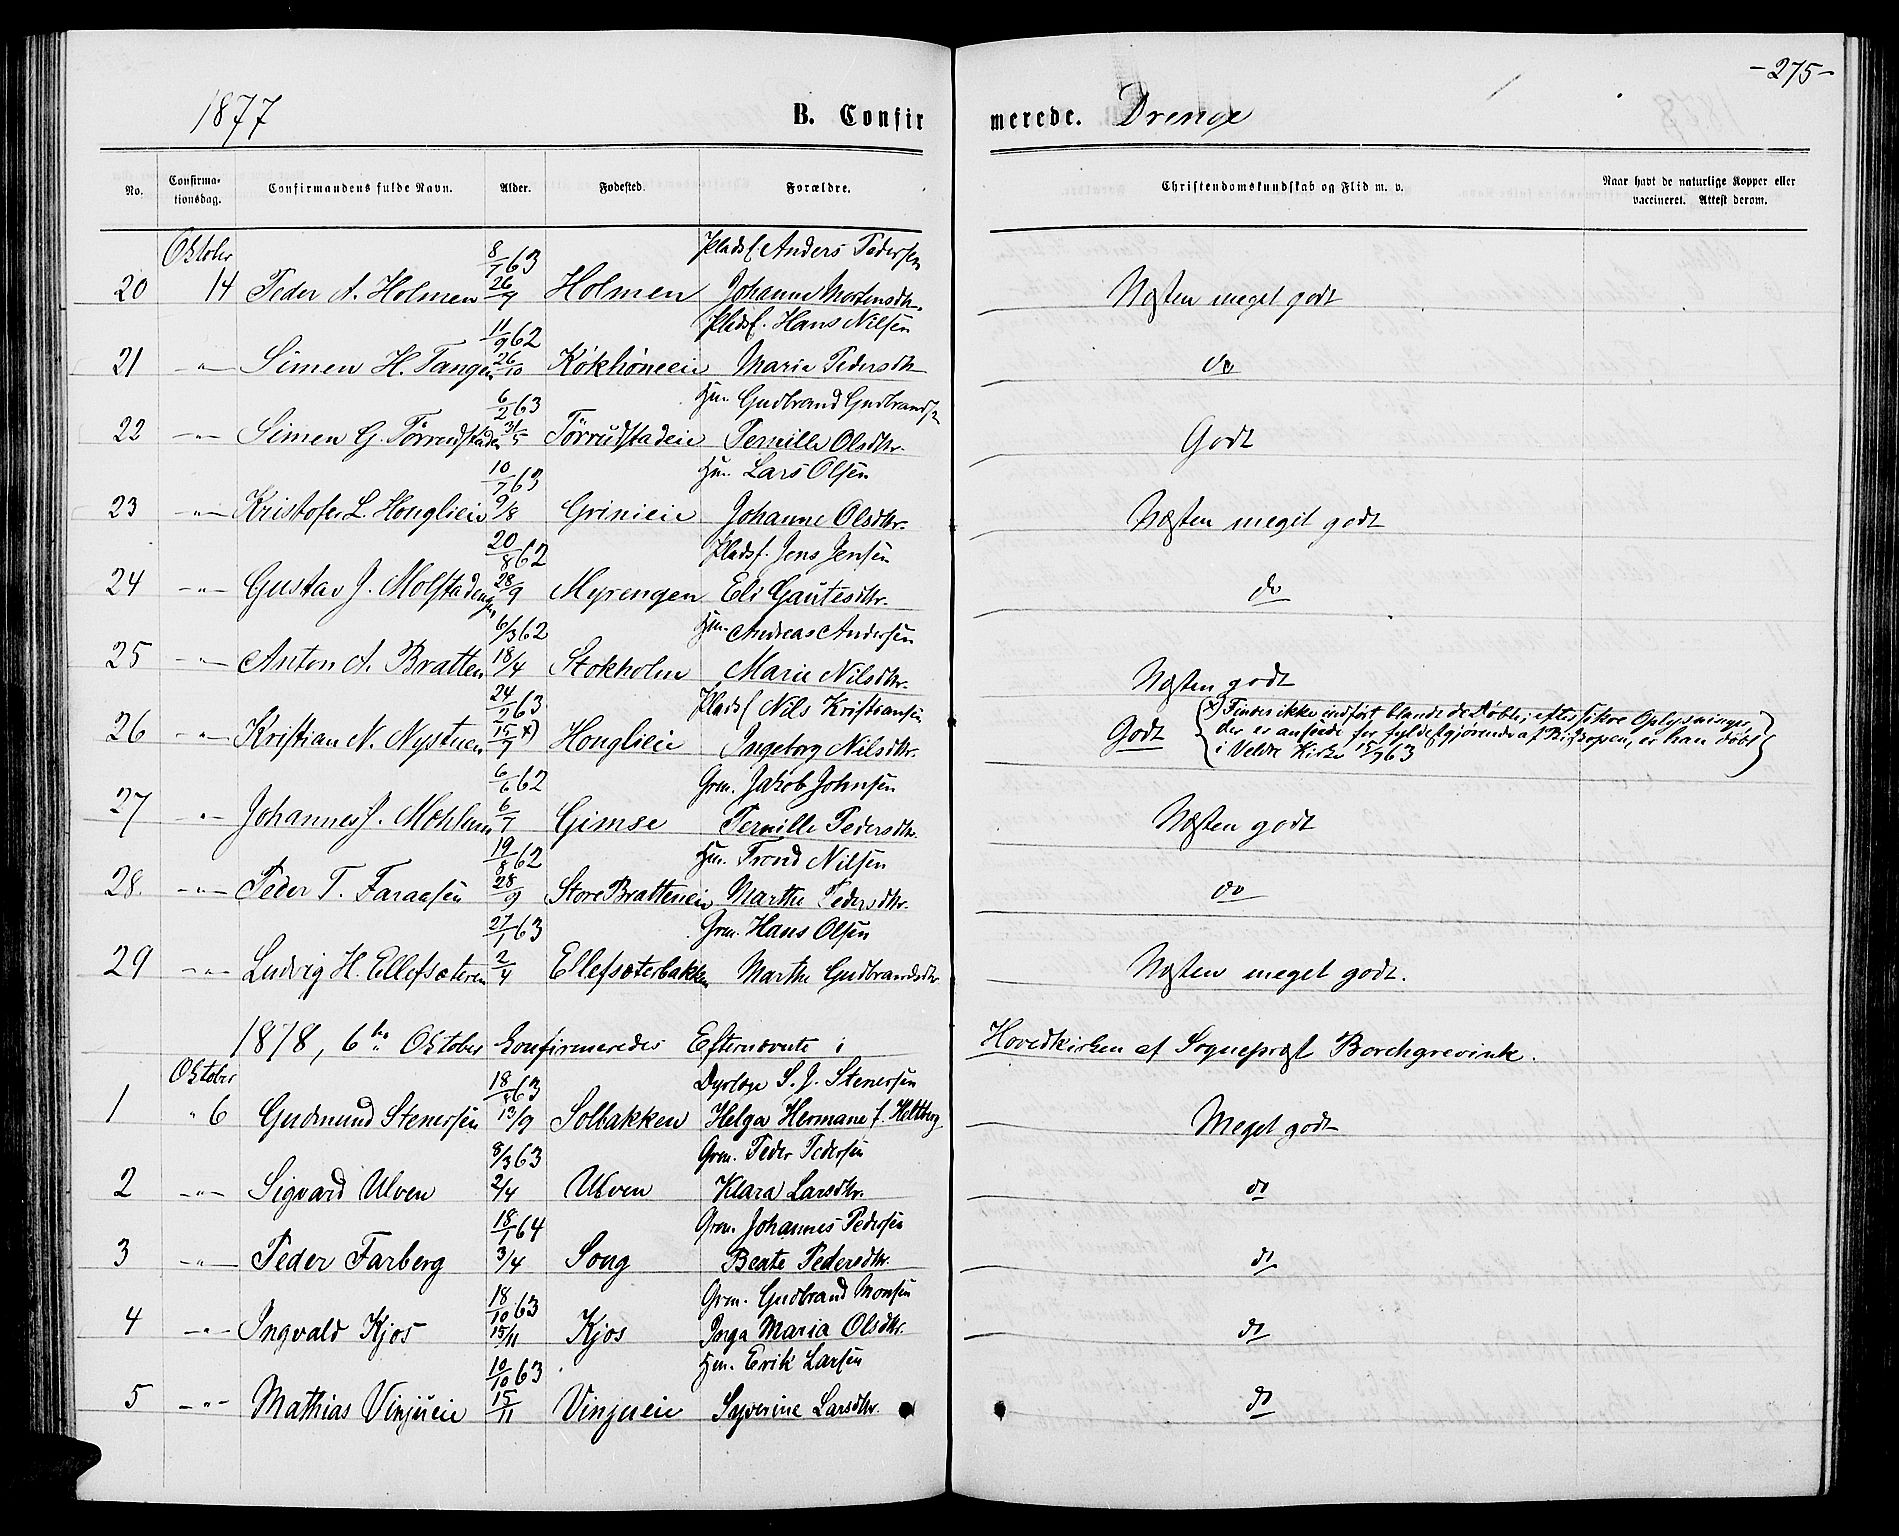 -275-
1877 B. Confirmerede. Drenge
No. Confirmationsdag. Confirmandens fulde Navn. Alder. Fødested. Forældre. Christendomskundskab og Flid m. v. Naar havt de naturlige Kopper eller vaccineret. Attest derom.
Oktober 8/7 63 Pladsf. Anders Pedersen
20 14 Peder A. Holmen 26/9 Holmen Johanne Mortensdtr. Næsten meget godt
11/9 62 Pladsf. Hans Nilsen
21 -"- Simen H. Tangen 26/10 Kökhöneeie Marie Pedersdtr do
6/2 63 Hm. Gudbrand Gudbrandsn
22 -"- Simen G. Törrudstaden 31/5 Törrudstadeie Pernille Olsdtr. Godt
10/7 63 Hm. Lars Olsen
23 -"- Kristofer L. Honglieie 9/8 Grinieie Johanne Olsdtr. Næsten meget godt
20/8 62 Pladsf. Jens Jensen
24 -"- Gustav J. Molstadengen 28/9 Myrengen Eli Gautesdtr. do
6/3 62 Hm. Andreas Andersen
25 -"- Anton A. Bratten 18/4 Stokholm Marie Nilsdtr. Næsten godt
24/2 63 Pladsf Nils Kristiansen
26 -"- Kristian N. Nystuen 15/7 x) Honglieie Ingeborg Nilsdtr. Godt
(x) Findes ikke indført blandt de Døbte; efter sikre Oplysninger,
der er anseede for fyldestgjørende af Biskopen, er han døbt
i Veldre Kirke 15/7 63)
6/6 62 Grm. Jakob Johnsen
27 -"- Johannes J. Mæhlum 6/7 Gimse Pernille Pedersdtr. Næsten godt
19/8 62 Hm. Trond Nilsen
28. -"- Peder T. Faraasen 28/9 Store Bratteneie Marthe Pedersdtr. do
27/1 63 Grm. Hans Olsen
29 -"- Ludvig H. Ellefsæteren 2/4 Ellefsæterbakken Marthe Gudbrandsdtr. Næsten meget godt.
1878, 6te Oktober konfirmeredes Efternævnte i Hovedkirken af Sognepræst Borchgrevink.
Oktober 18/8 63 Dyrlæge S. J. Stenersen
1 " 6 Gudmund Stenersen 13/9 Solbakken Helga Hermane f. Heltberg Meget godt
8/3 63 Grm. Peder Pedersen
2 -"- Sigvard Ulven 2/4 Ulven Klara Larsdtr. do
18/1 64 Grm. Johannes Pedersen
3 -"- Peder Farberg 3/4 Song Beate Pedersdtr. do
18/10 63 Grm. Gudbrand Monsen
4 -"- Ingvald Kjos 15/11 Kjos Inga Maria Olsdtr. do
10/10 63 Hm. Erik Larsen
5 -"- Mathias Vinjueie 15/11 Vinjueie Syverine Larsdtr. do